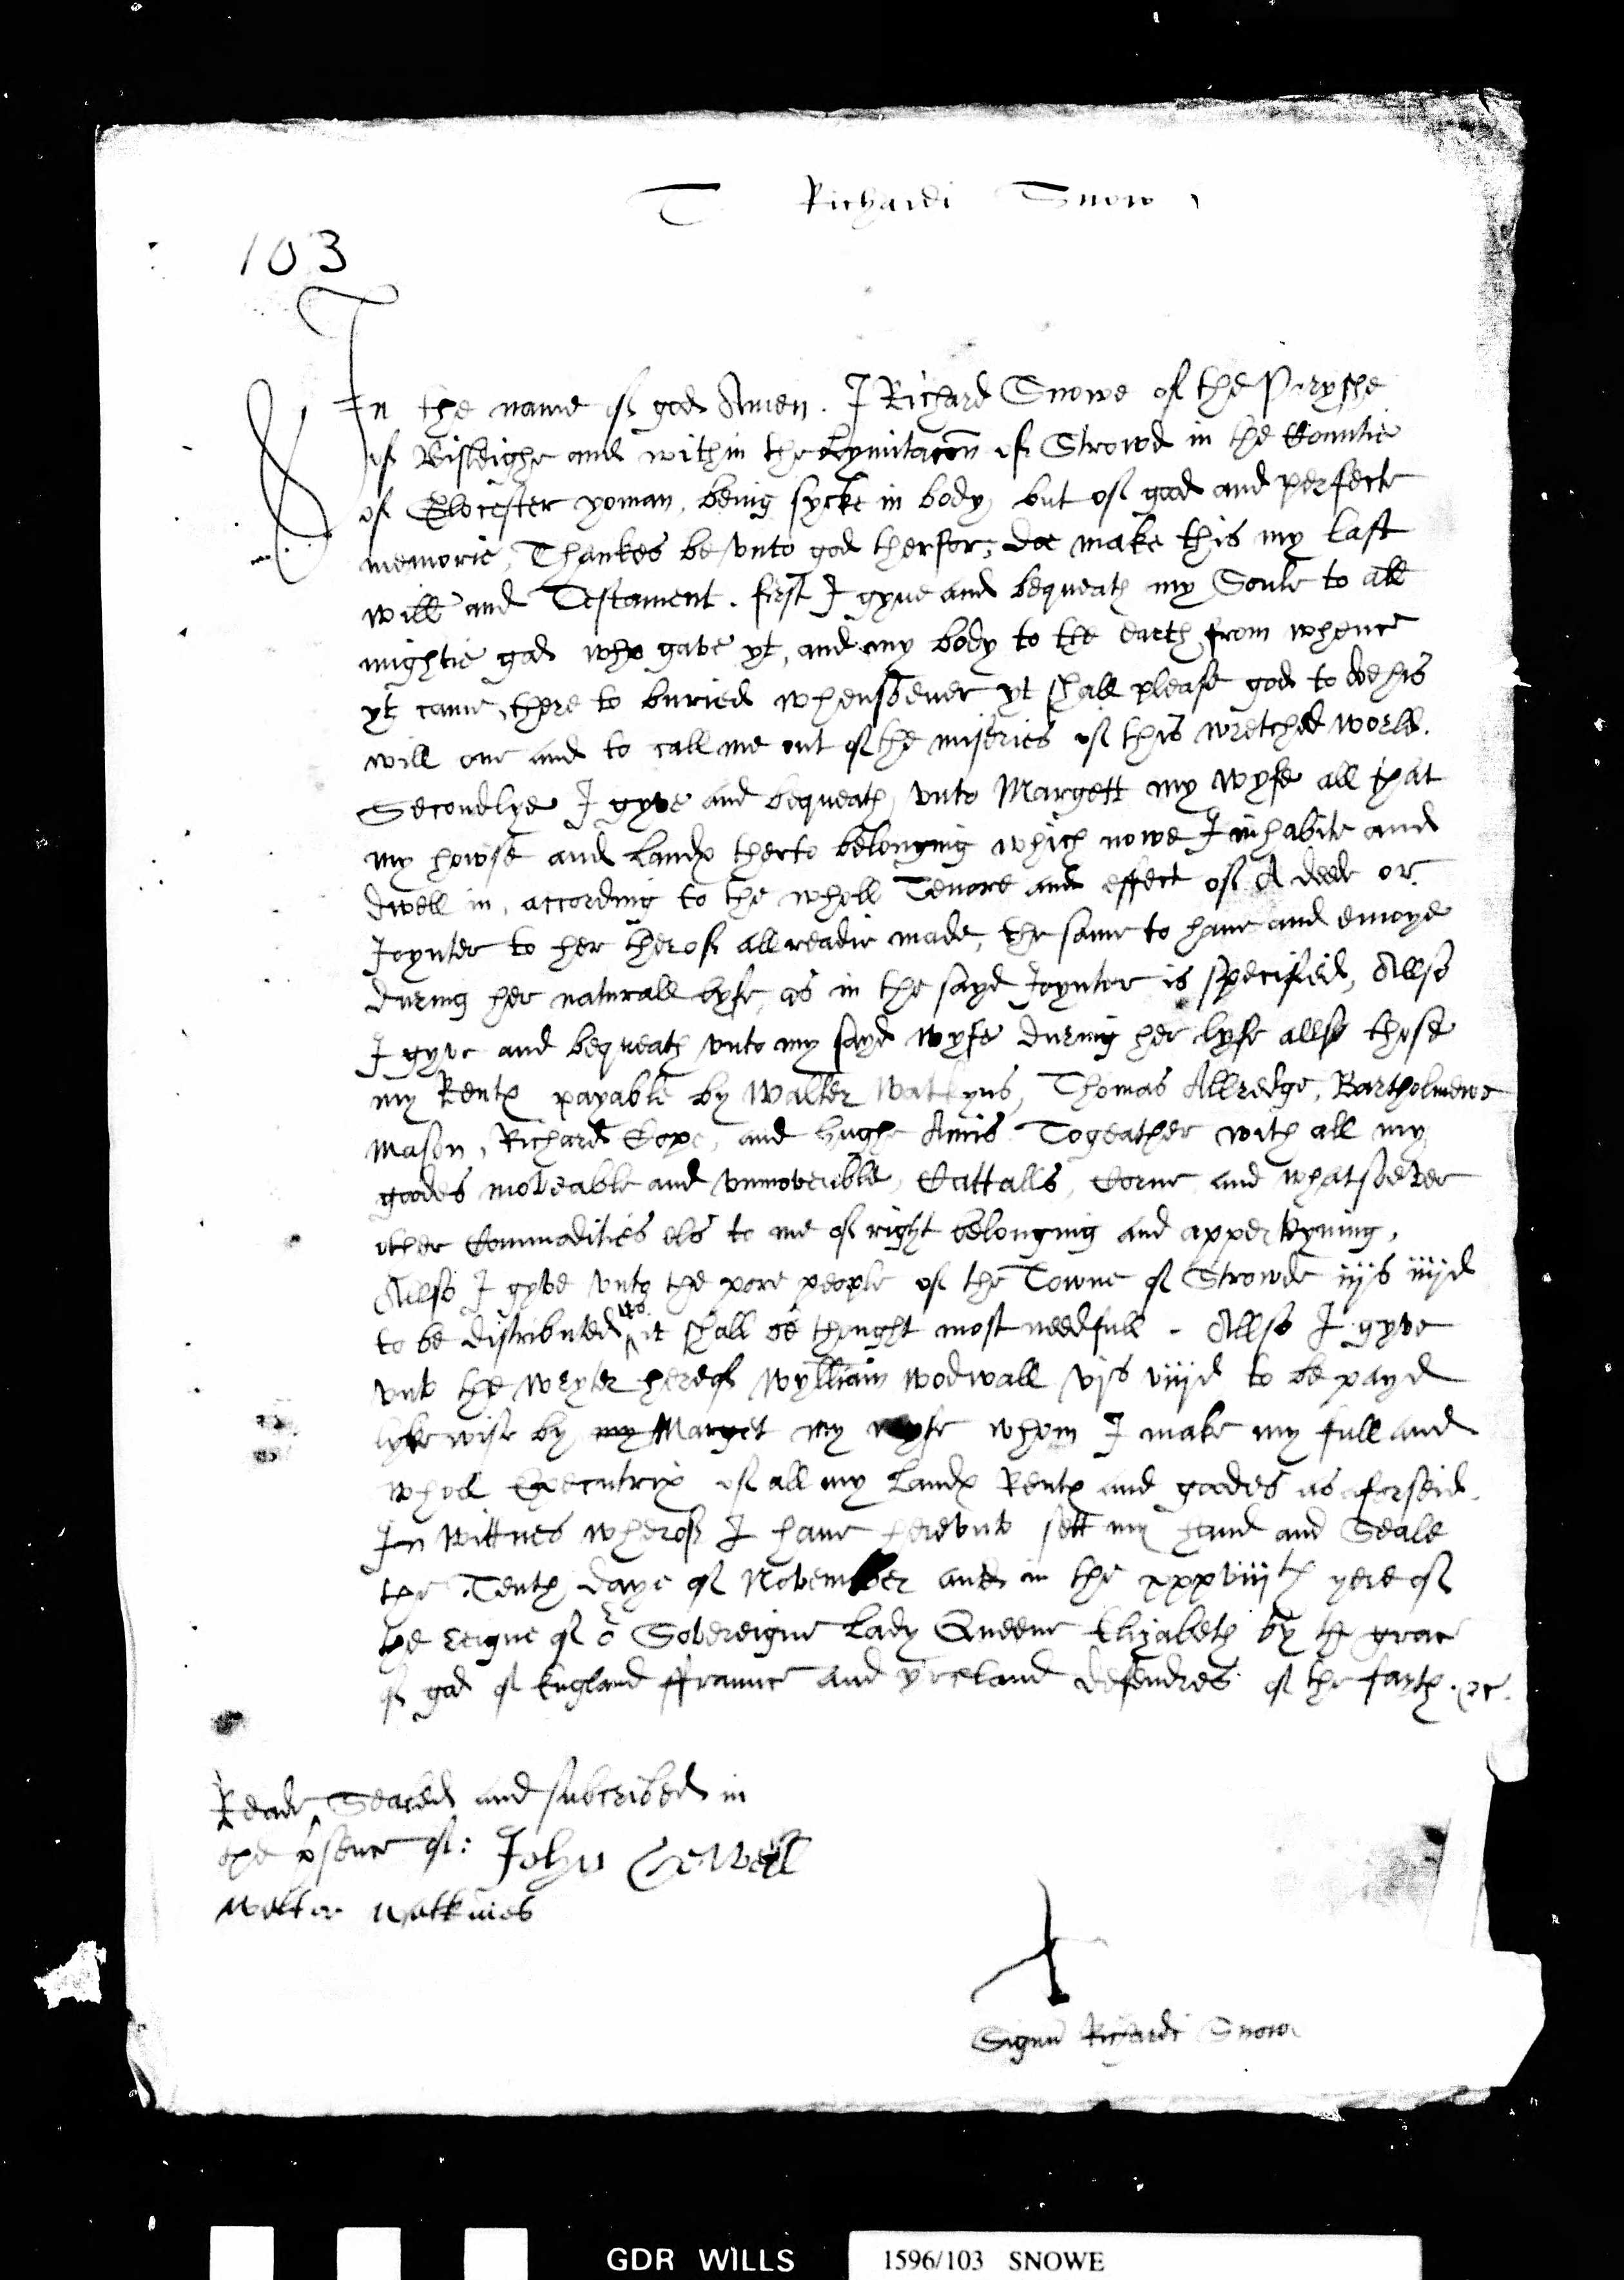 T Richardi Snow
103
In the name of god Amen. I Richard Snowe of the Paryshe
of Bisleighe and within the Lymitacon of Strowd in the Countie
of Glocester yoman, being sycke in body, but of good and perfecte
memorie, Thankes be vnto god therfor, doe make this my last
will and Testament. first I gyue and bequeath my Soule to all
mightie god who gave yt, and my body to the earth from whence
yt came, there to buried whensoeuer yt shall please god to doe his
will one and to call me out of the miseries of this wretched world.
Secondlye I gyve and bequeath vnto Margett my wyfe all that
my howse and Landes therto belonging which nowe I inhabite and
dwell in, according to the wholl Tenore and effect of A deede or
Joynter to her therof allreadie made, the same to haue and enioye
during her naturall lyfe, as in the sayd Joynter is specified, Allso
I gyve and bequeath vnto my sayd wyfe during her lyfe allso those
my Rentes payable by Walter Watkyns, Thomas Allredge, Bartholmewe
Mason, Richard Cope, and Hughe Amis Togeather with all my
goodes moveable and vnmoveable, Cattalls, Corne and whatsoever
other Commodities els to me of right belonging and apperteyning.
Allso I gyve vnto the pore people of the Towne of Strowde iijs iiijd
to be distributed it shall be thought most needfull - Allso I gyve
vnto the wryter hereof Wylliam Wodwall vjs viijd to be payd
lykewise by my Marget my wyfe whom I make my full and
wholl Executrix of all my Landes Rentes and goodes as aforseid.
In Wittnes wherof I haue herevnto sett my hand and Seale
the Tenth daye of November and in the xxxviijth yere of
the reigne of or Sovereigne Lady Queene Elizabeth by the grace
of god of England ffraunce and yreland defendres of the fayth. &c.
Reade, Sealed and subcribed in
the psence of: John
Walter Watkines
Signu Richardi Snow
GDR WILLS
1596/103 SNOWE